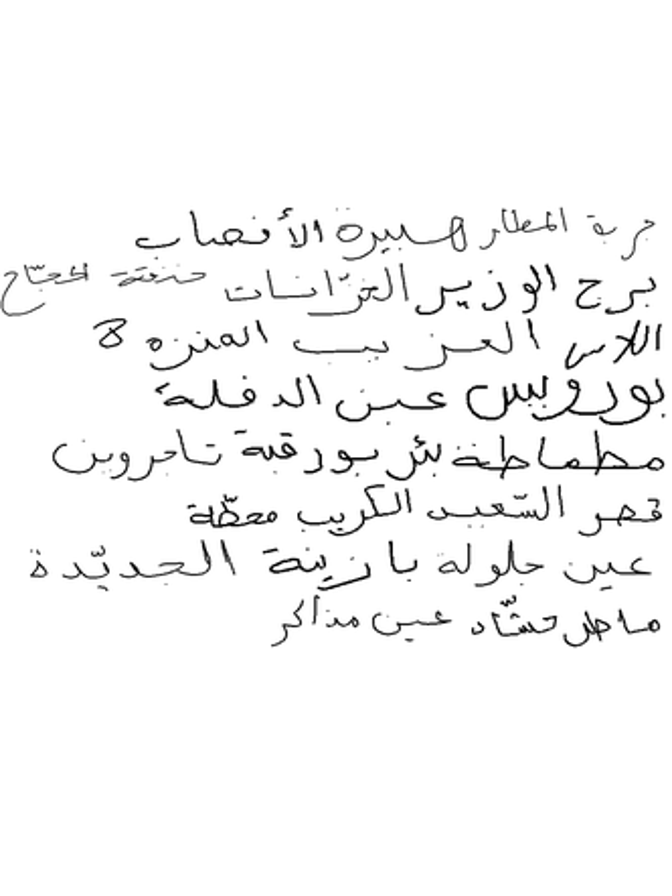 جربة المطار هبيرة الأنصاب
برج الوزير الخزّانات خنقة الحجّاج
اللاس الغريب المنزه 8
بورويس عين الدفلة
مطماطة بئر بورقبة تاجروين
قصر السّعيد الكريب محطّة
عين جلولة بازينة الجديّدة
ماطر حشّاد عين مذاكر